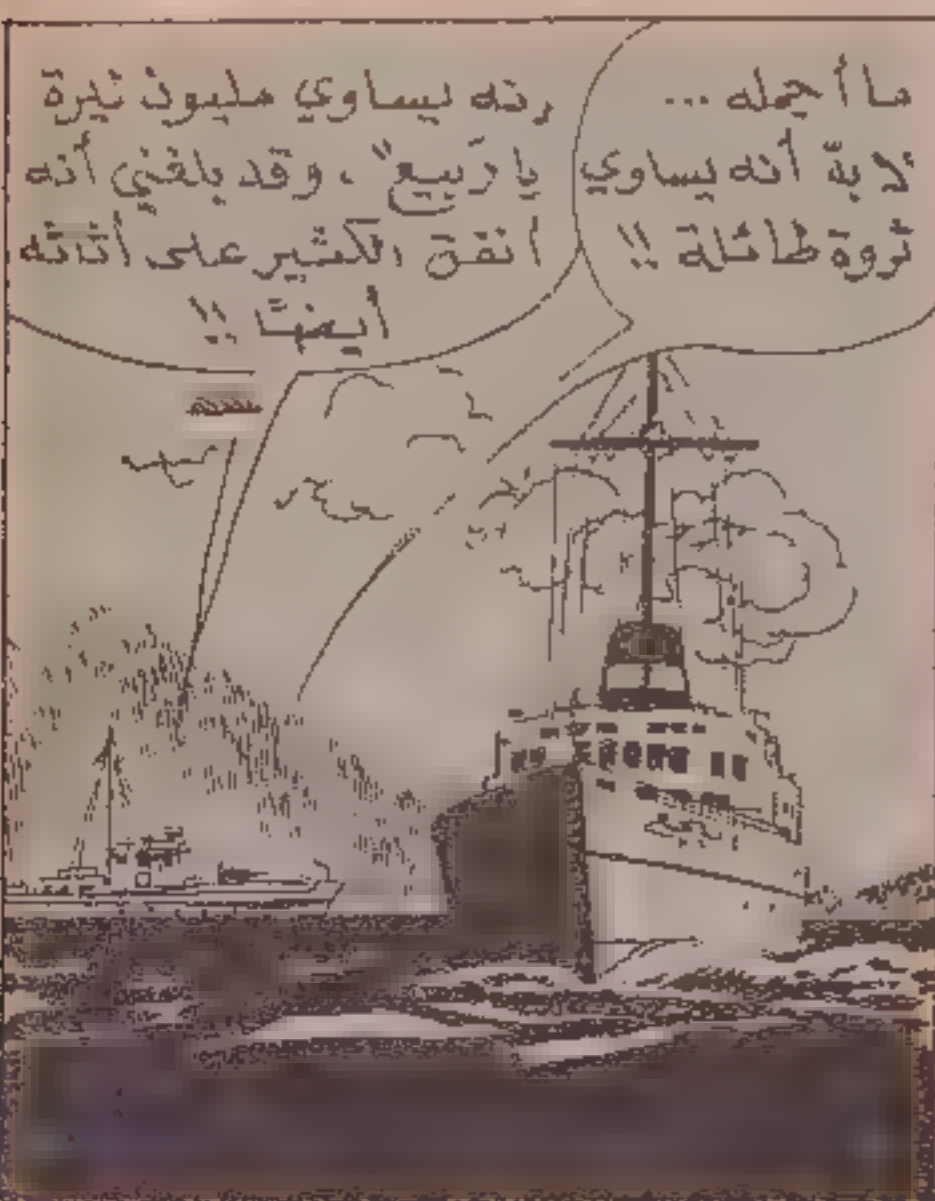 ما أجمله ...
لا بدّ أنه يساوي
ثروة طائلة !!
إنه يساوي مليون ليرة
يا "ربيع" ، وقد بلغني أنه
أنفق الكثير على أثاثه
أيضًا !!